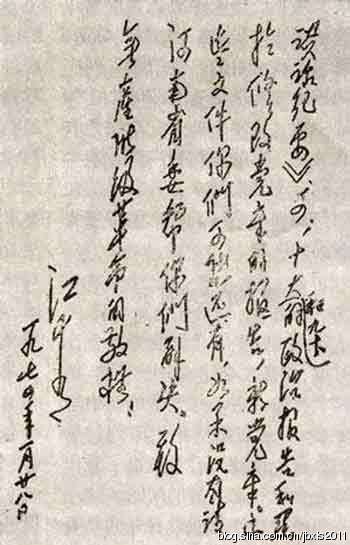 谈话纪要》、十大的政治报告和关
和九大
於修改党章的报告，新党章。这
些文件你們可能还有，如果没有请
河南省委帮你們解决。致
無產階级革命的敬礼！
江青
一九七四年一月廿八日
blog.sina.com.cn/jpxls2011